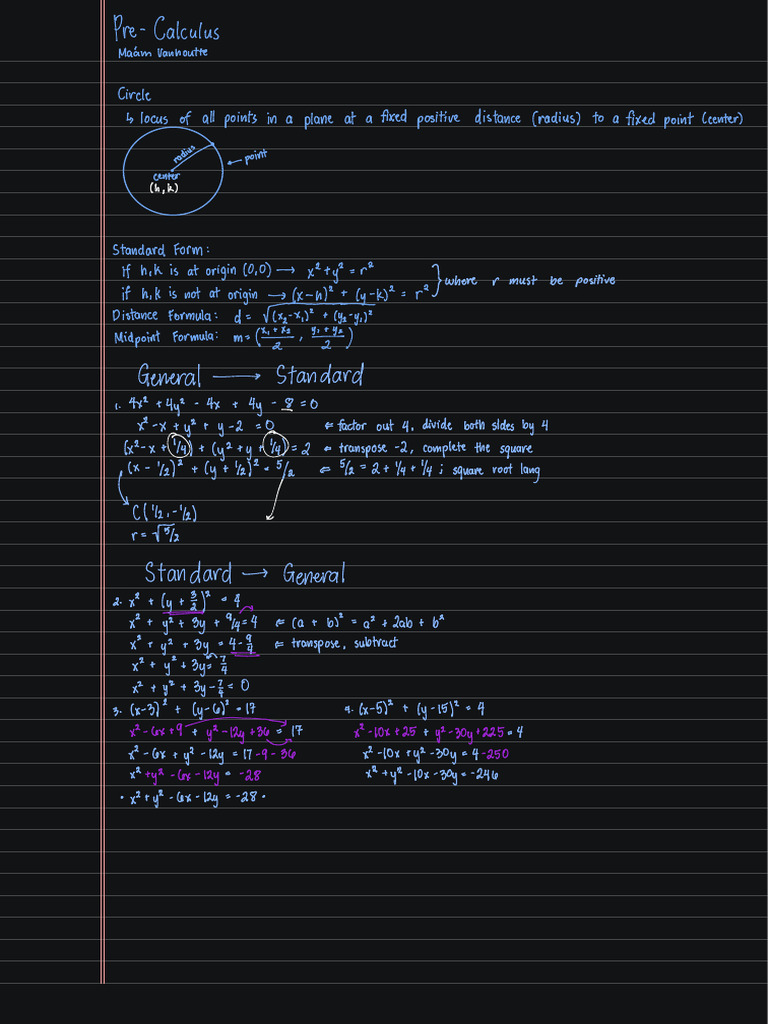 Pre-Calculus
Ma'am Vanhoutte
Circle
↳ locus of all points in a plane at a fixed positive distance (radius) to a fixed point (center)
radius
← point
center
(h, k)
Standard Form:
if h,k is at origin (0,0) → x² + y² = r²
} where r must be positive
if h,k is not at origin → (x-h)² + (y-k)² = r²
Distance Formula: d = √(x₂-x₁)² + (y₂-y₁)²
Midpoint Formula: m = (x₁+x₂/2, y₁+y₂/2)
General → Standard
1. 4x² + 4y² - 4x + 4y - 8 = 0
x² - x + y² + y - 2 = 0 ⇐ factor out 4, divide both sides by 4
(x² - x + 1/4) + (y² + y + 1/4) = 2 ⇐ transpose -2, complete the square
(x - 1/2)² + (y + 1/2)² = 5/2 ⇐ 5/2 = 2 + 1/4 + 1/4 ; square root lang
C(1/2, -1/2)
r = √5/2
Standard → General
2. x² + (y + 3/2)² = 4
x² + y² + 3y + 9/4 = 4 ⇐ (a + b)² = a² + 2ab + b²
x² + y² + 3y = 4 - 9/4 ⇐ transpose, subtract
x² + y² + 3y = 7/4
x² + y² + 3y - 7/4 = 0
3. (x-3)² + (y-6)² = 17
x² - 6x + 9 + y² - 12y + 36 = 17
x² - 6x + y² - 12y = 17 - 9 - 36
x² + y² - 6x - 12y = -28
• x² + y² - 6x - 12y = -28 •
4. (x-5)² + (y-15)² = 4
x² - 10x + 25 + y² - 30y + 225 = 4
x² - 10x + y² - 30y = 4 - 250
x² + y² - 10x - 30y = -246